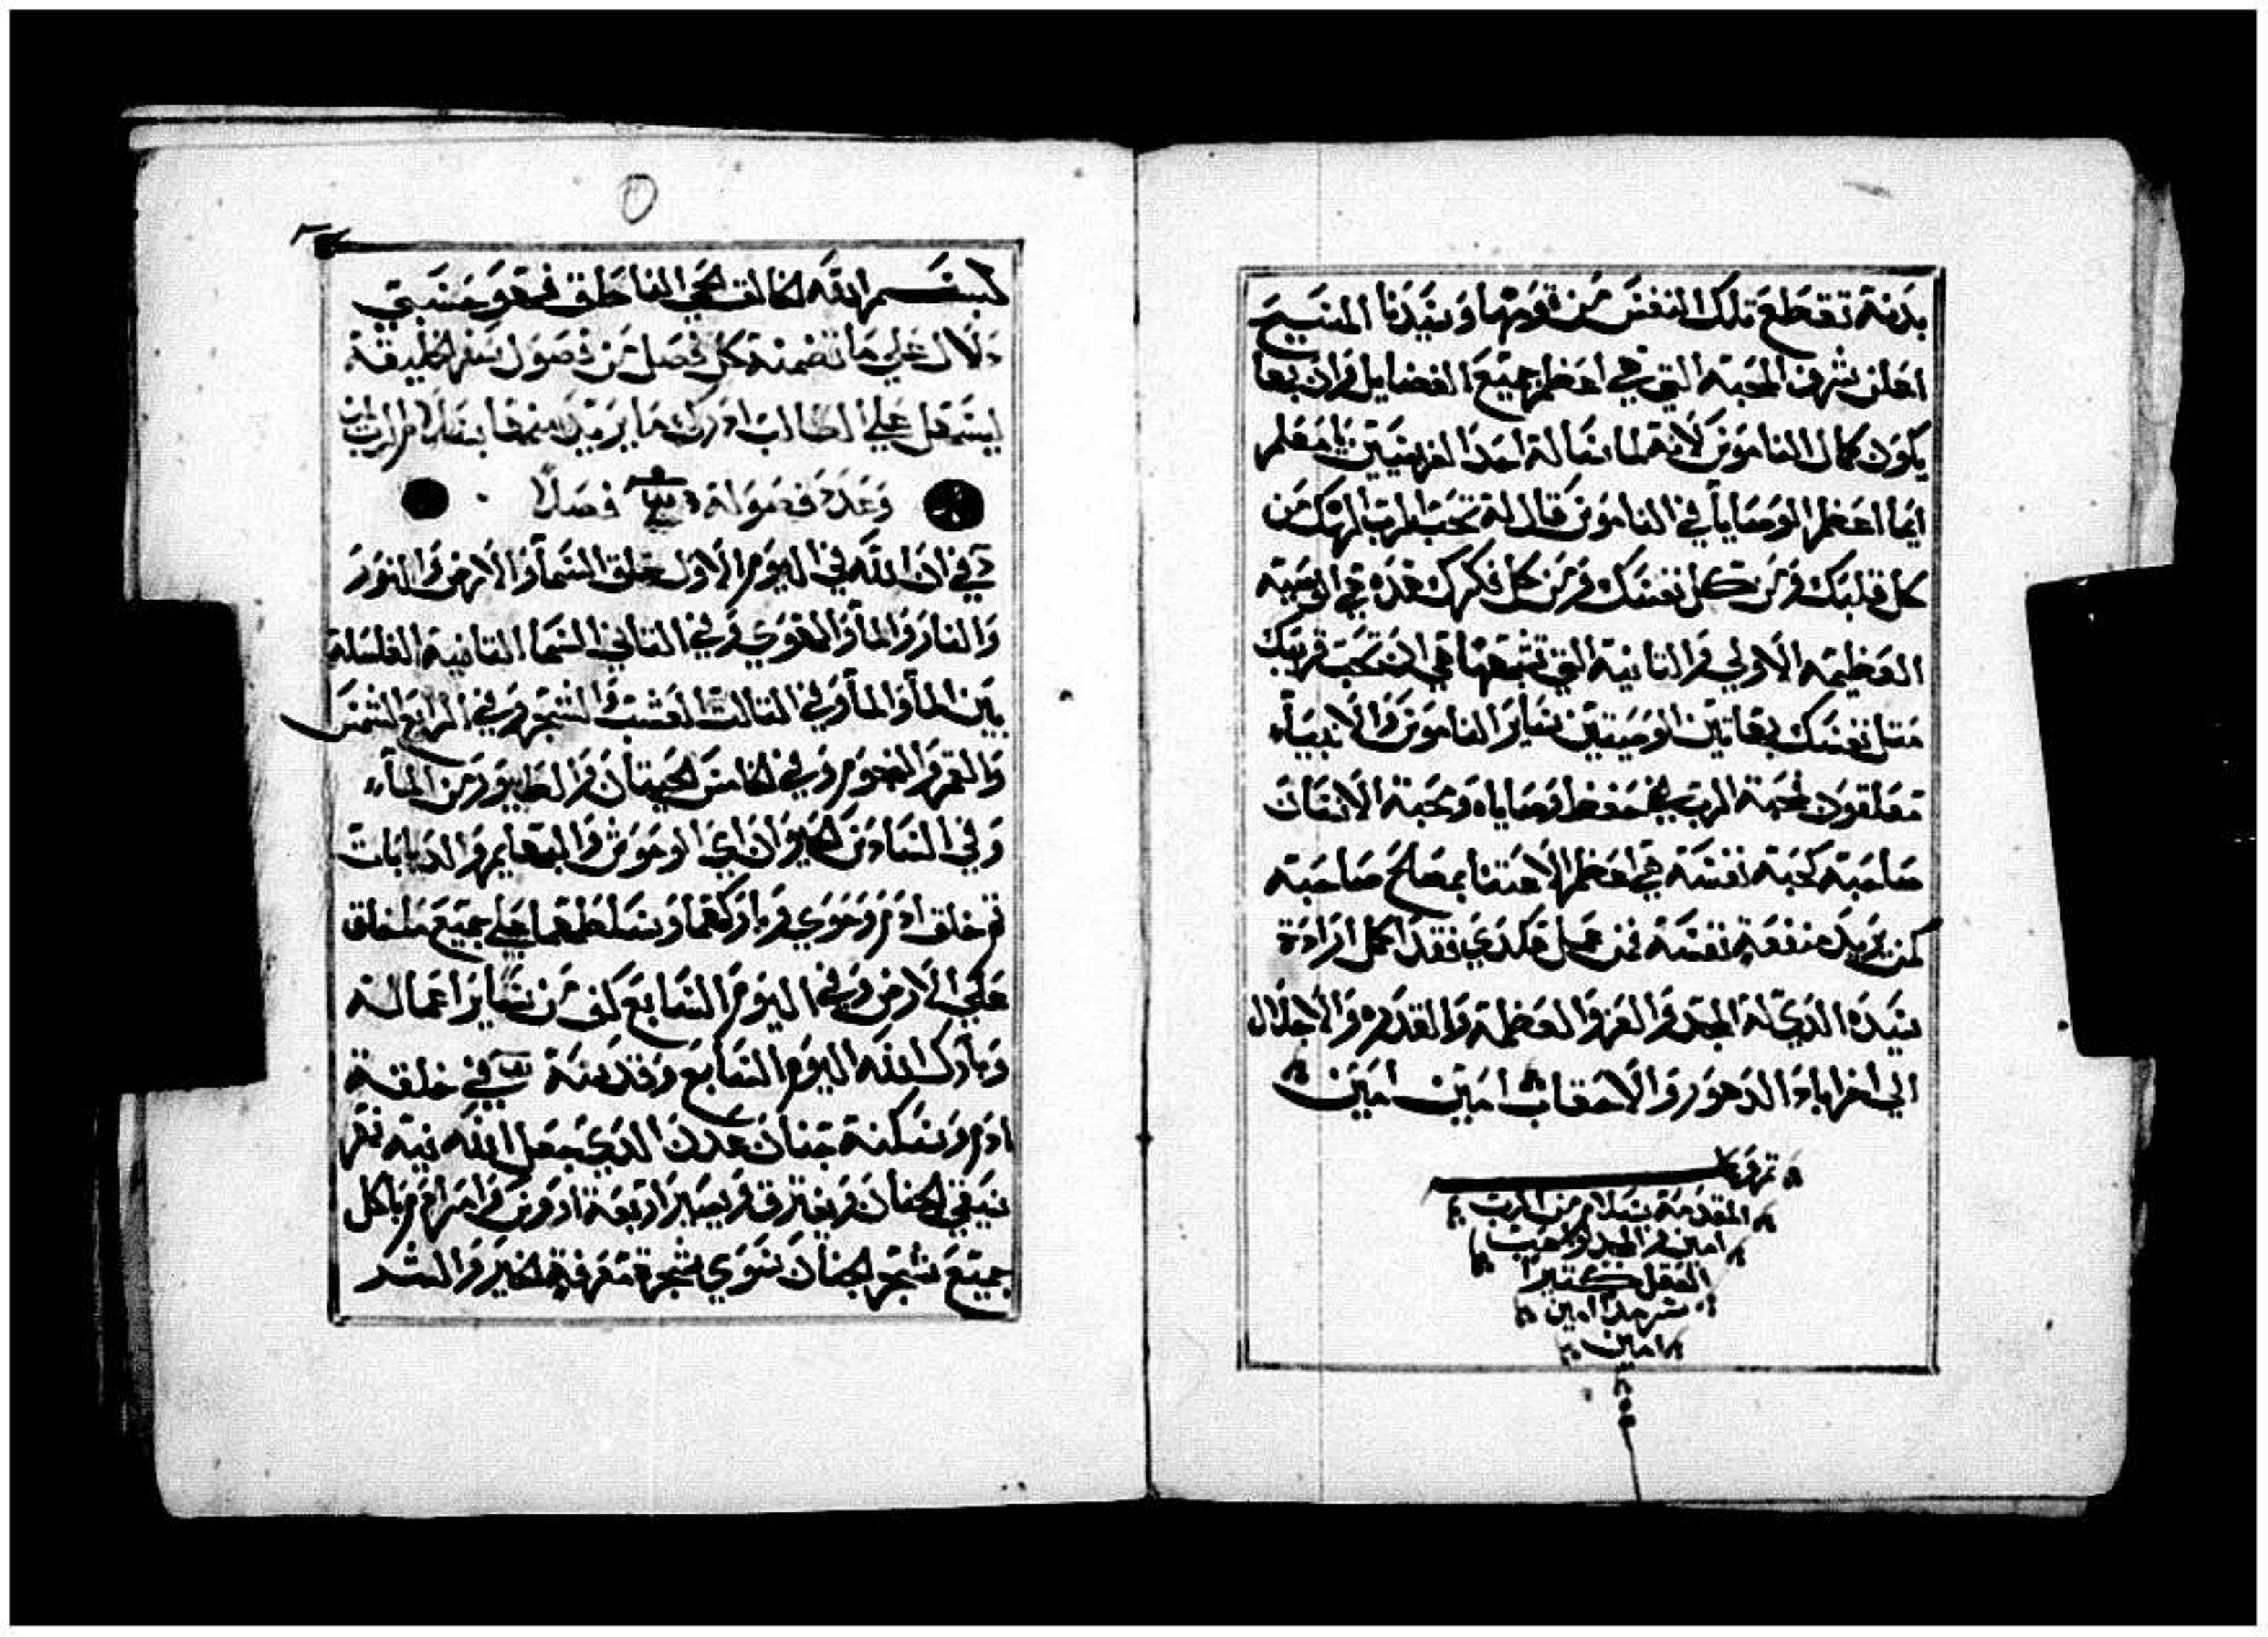 بدنه تقطع تلك النفس من قومها وسيدنا المسيح
اعلن شرف المحبه التي هي اعظم جميع الفضايل وان بها
يكون كمال الناموس لانه لما ساله احد الفريسيين يا معلم
ايما اعظم الوصايا في الناموس قال له تحب الرب الهك من
كل قلبك ومن كل نفسك ومن كل فكرك هده هي الوصيه
العظيمه الاولي والتانيه التي تشبهها هي ان تحب قريبك
متل نفسك بهاتين الوصيتين ساير الناموس والانبيآء
متعلقون فمحبة الرب في حفظ وصاياه ومحبة الانسان
صاحبه كمحبه نفسه هي اعظم الاعتنا بمصالح صاحبه
كمن يريد منفعة نفسه فمن عمل هكدي فقد اكمل ارادة
سيده الدي له المجد والعز والعظمة والقدره والاجلال
الي اخر اباد الدهور والاحقاب امين امين
المقدمة بسلام من الرب
امين والمجد
العقل كتيرا
سرمدا امين
امين
بسم الله الخالق الحي الناطق فهو حسبي
دلال علي ما تضمنه كل فصل من فصول سفر الخليقة
ليسهل علي الطالب ادراك ما يريد منها بسلام الرب امين
وعدد فصوله فصلا
في ان الله في اليوم الاول خلق السمآ والارض والنور
والنار والمآ والهوي وفي التاني السما التانيه الفاصله
بين المآ والمآ وفي التالت العشب والشجر وفي الرابع الشمس
والقمر والنجوم وفي الخامس الحيتان والطيور من المآء
وفي السادس الحيوان اي الوحوش والبهايم والدبابات
تم خلق ادم وحوي وباركهما وسلطهما علي جميع ما خلق
علي الارض وفي اليوم السابع كف من ساير اعماله
وبارك الله اليوم السابع وقدسه في خلقة
ادم وسكنه جنان عدن الدي جعل الله فيه نهر
يسقي الجنان ويفترق ويصير اربعة اروس وامر ادم ياكل
جميع شجر الجنان سوي شجرة معرفة الخير والشر